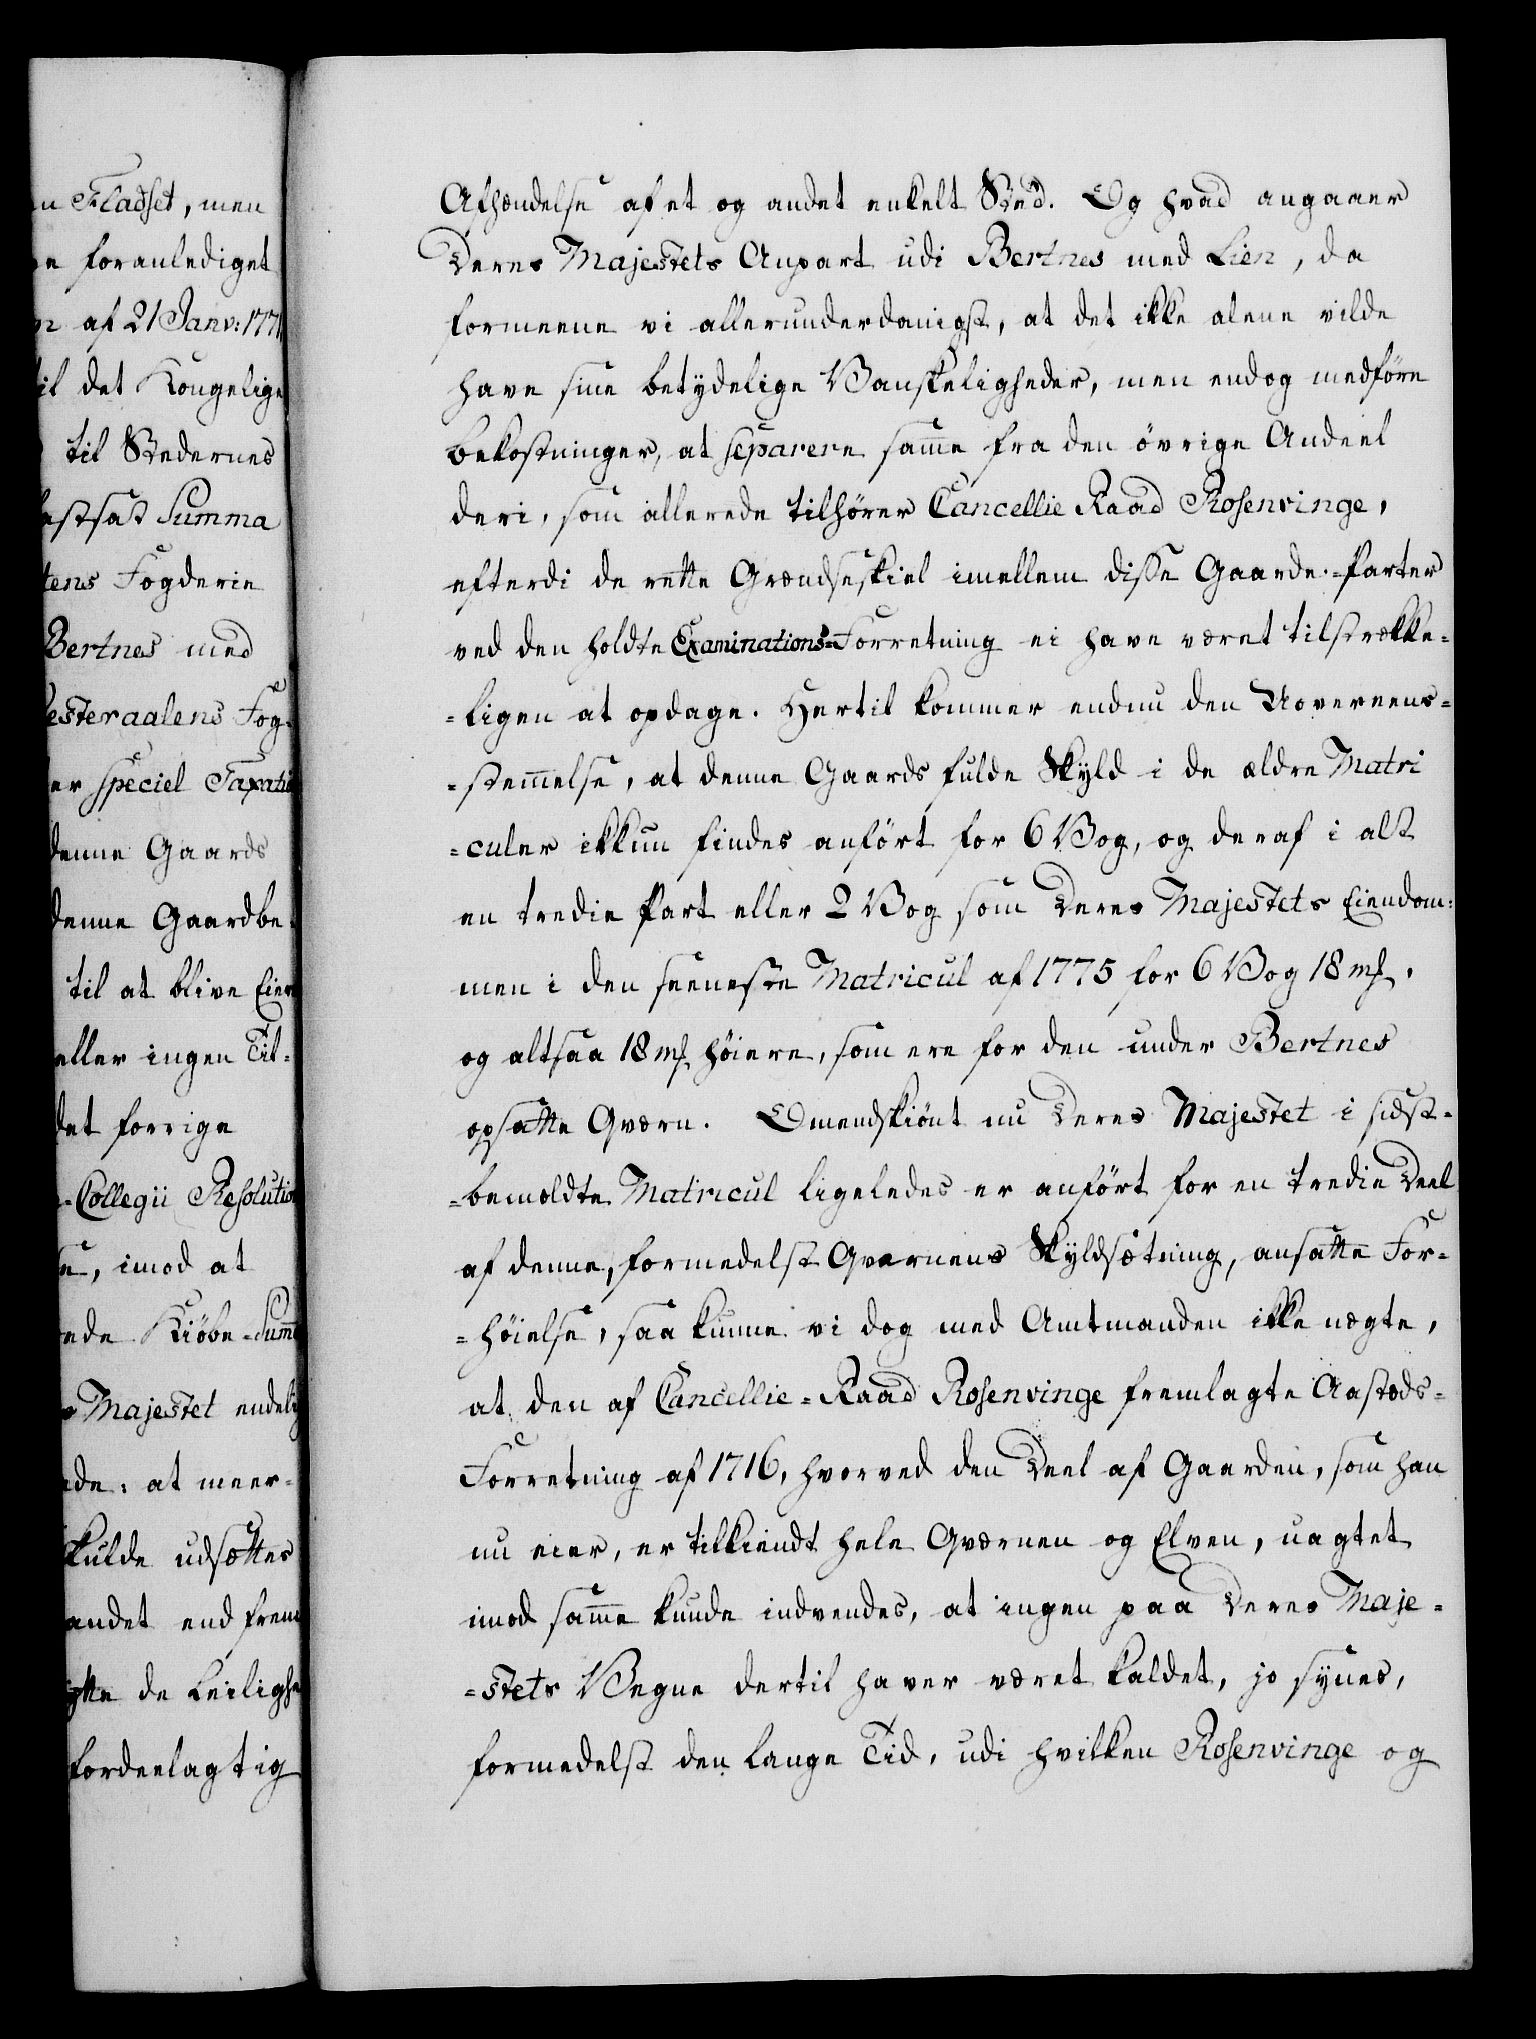 n Fladset, men
e foranlediget
n af 21 Janv: 1771
til det Kongelige
til Stedernes
astsat Summa
tens Fogderie
Bertnes med
esteraalens Fog-
er speciel Taxatio
denne Gaards
denne Gaardbe
til at blive Eier
eller ingen Til-
det forrige
-Collegii Resolution
e, imod at
ede Kiöbe-Sum̄
Majestet endelig
de: at meer-
kulde udsættes
andet end frem
ytte de Leiligh
fordeelagtig
Afhændelse af et og andet enkelt Sted. Og hvad angaaer
Deres Majestets Anpart udi Bertnes med Lien, da
formeene vi allerunderdanigst, at det ikke alene vilde
have sine betydelige Vanskeligheder, men endog medföre
bekostninger, at separere sam̄e fra den övrige Andeel
deri, som allerede tilhörer Cancellie Raad Rosenvinge,
efterdi de rette Grændseskiel imellem disse Gaarde-Parter
ved den holdte Examinations-Forretning ei have været tilstrække-
-ligen at opdage. Hertil kommer endnu den Uovereens-
-stem̄else, at denne Gaards fulde Skyld i de ældre Matri
-culer ikkun findes anfört for 6 Vog, og deraf i alt
en tredie Part eller 2 Vog som Deres Majestets Eiendom:
men i den seeneste Matricul af 1775 for 6 Vog 18 mk,
og altsaa 18 mk höiere, som ere for den under Bertnes
opsatte Qværn. Omendskiönt nu Deres Majestet i sidst-
-bemældte Matricul ligeledes er anfört for en tredie Deel
af denne, formedelst Qværnens Skyldsætning, ansatte For-
-höielse, saa kunne vi dog med Amtmanden ikke nægte,
at den af Cancellie-Raad Rosenvinge fremlagte Aasteds-
Forretning af 1716, hvorved den Deel af Gaarden, som han
nu eier, er tilkiendt hele Qværnen og Elven, uagtet
imod sam̄e kunde indvendes, at ingen paa Deres Maje-
-stets Vegne dertil haver været kaldet, jo synes,
formedelst den lange Tid, udi hvilken Rosenvinge og